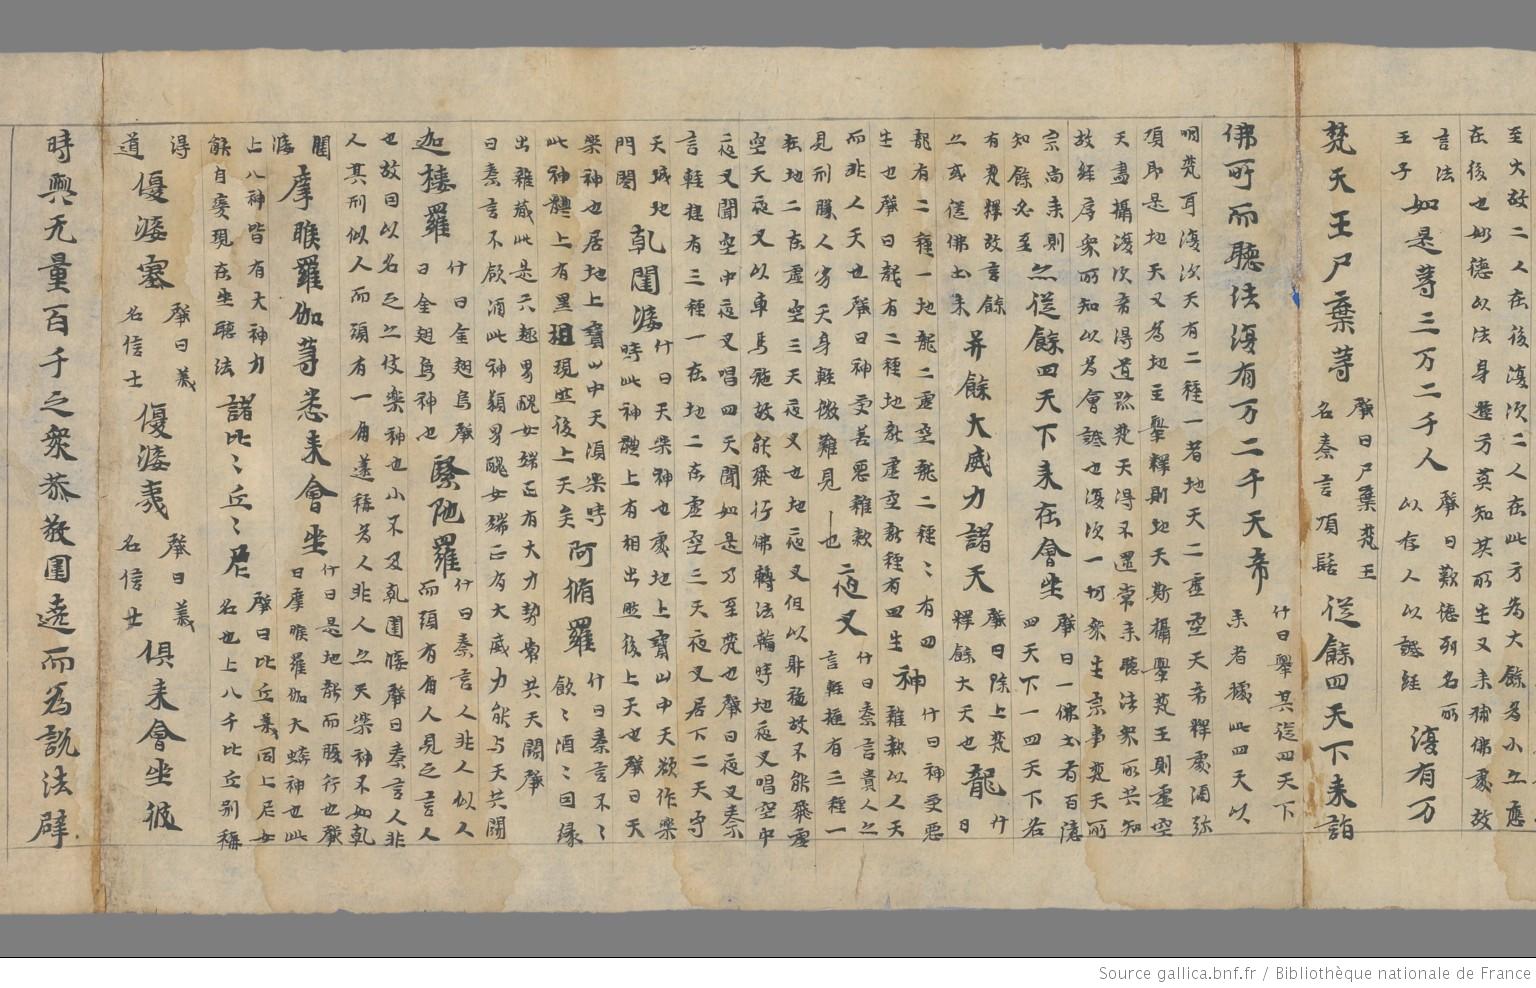 至大故二人在後復次二人在此方为大餘为小亦應
在後也妙德以法身遊方莫知其所生又来補佛處故
言法
王子
如是等三万二千人
肇曰歎德列名所
以存人以證經
復有万
梵天王尸棄等
肇曰尸棄梵王
名秦言頂髻
從餘四天下来詣
佛所而聽法復有万二千天帝
什曰舉其從四天下
来者攏此四天以
明梵耳復次天有二種一者地天二虛空天帝釋處湏弥
頂即是地天又为地主舉釋則地天斯攝舉梵王則虛空
天盡攝復次帝得道跡梵天得不還常来聽法衆所共知
故經序衆所知以为會證也復次一切衆生宗事梵天所
宗尚来則
知餘必至
亦從餘四天下来在會坐
肇曰一佛土有百億
四天下一四天下各
有梵釋故言餘
亦或從佛土来
并餘大威力諸天
肇曰除上梵
釋餘大天也
龍
什
曰
龍有二種一地龍二虛空龍二種〻有四
生也肇曰龍有二種地龍虛空龍種有四生
神
什曰神受惡
雜報以人天
而非人天也肇曰神受善惡雜報
見形勝人劣天身輕微難見也
夜叉
什曰秦言貴人亦
言輕捷有三種一
在地二在虛空三天夜叉也地夜叉但以財施故不能飛虛
空天夜叉以車馬施故能飛行佛轉法輪時地夜叉唱空中
夜叉聞空中夜叉唱四天聞如是乃至梵也肇曰夜叉秦
言輕捷有三種一在地二在虛空三天夜叉居下二天守
天城池
門閣
乾闥婆
什曰天樂神也處地上寶山中天欲作樂
時此神體上有相出然後上天也肇曰天
樂神也居地上寶山中天湏樂時
此神體上有異相現然後上天矣
阿脩羅
什曰秦言不〻
飲〻酒〻因緣
出雜藏此是六趣男醜女端正有大力勢常共天鬭肇
曰秦言不飲酒此神類男醜女端正有大威力能与天共鬭
迦樓羅
什曰金翅鳥肇
曰金翅鳥神也
緊陁羅
什曰秦言人非人似人
而頭有角人見之言人
也故因以名之亦伎樂神也小不及乾闥婆肇曰秦言人非
人其形似人而頭有一角遂稱为人非人亦天樂神不如乾
闥
婆
摩睺羅伽等悉来會坐
什曰是地龍而腹行也肇
曰摩睺羅伽大蟒神也此
上八神皆有大神力
能自變現在坐聽法
諸比〻丘〻尼
肇曰比丘義同上尼女
名也上八千比丘別稱
得
道
優婆塞
肇曰義
名信士
優婆夷
肇曰義
名信女
俱来會坐彼
時與无量百千之衆恭敬圍遶而为說法譬
Source gallica.bnf.fr / Bibliothèque nationale de France